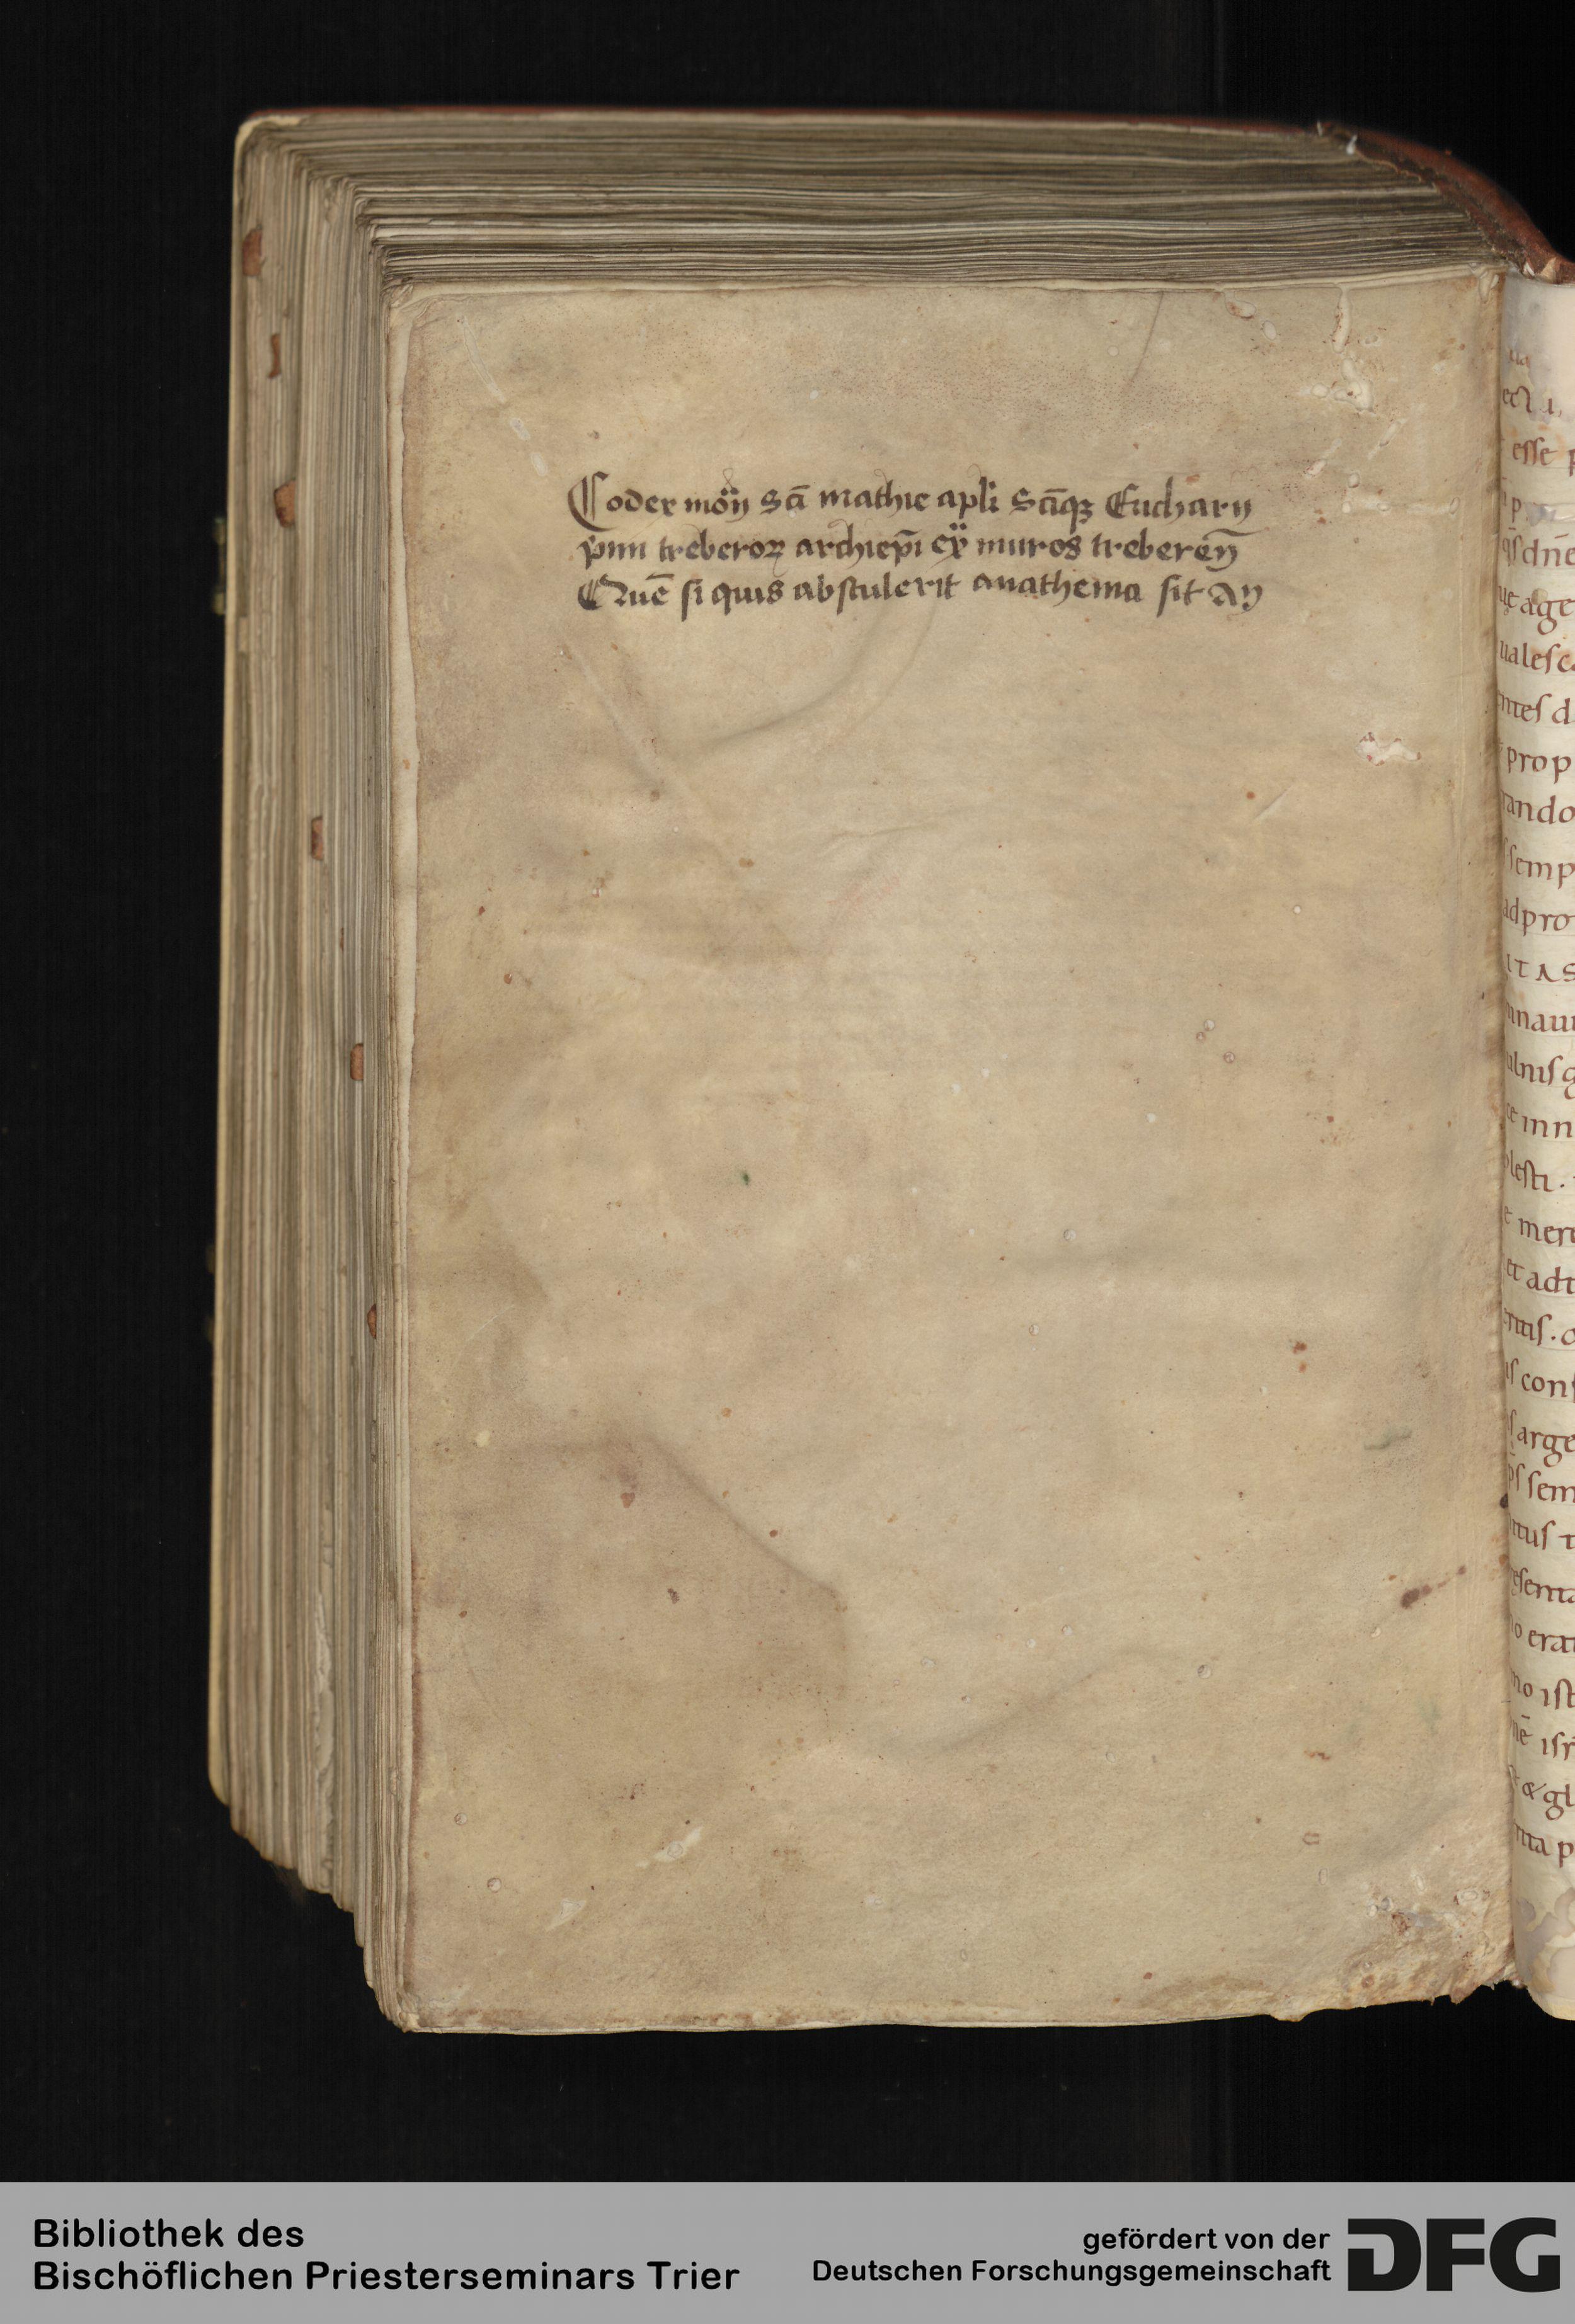 Codex mōn Scī mathie apli Sciq; Eucharii
pmi treberoꝝ archiepī ex muros treberen̄
Quē si quis abstulerit anathema sit Am̄
ua
esse p
p
qſdnē
ue age
ualeſc
ntes d
prop
ando
ſemp
adpro
ITAS
nnaui
ulniſ g
inn
leſti.
mere
et adt
con
arge
ſem
tuſ t
ſenta
erat
no iſt
iſr
& gl
ita p
Bibliothek des
Bischöflichen Priesterseminars Trier
gefördert von der
Deutschen Forschungsgemeinschaft
DFG